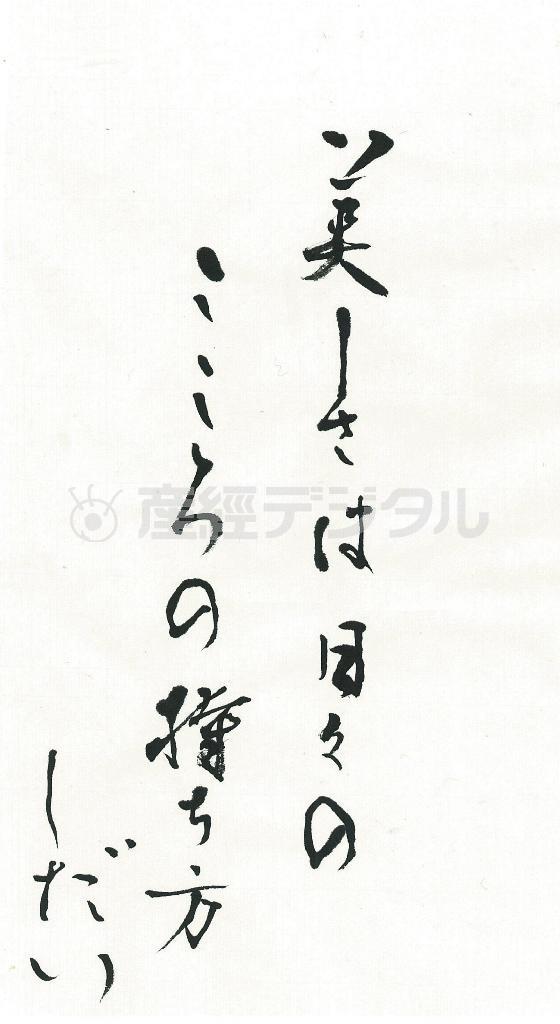 美しさは日々の
こころの持ち方
しだい
産経デジタル